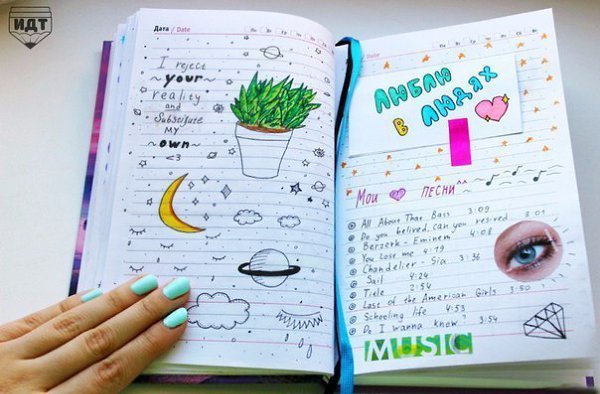 ИДТ
Дата / Date
I reject
~your~
reality
and
Substitute
MY
~own~
<3
Date
ЛЮБЛЮ
В ЛЮДЯХ
Мои песни^^
All About That Bass 3:09
Do you belived, can you resived 3:01
Berzerk - Eminem 4:08
You lose me 4:19
Chandelier - Sia 3:36
Sail 4:24
Title 2:54
Last of the American Girls 3:50
Schooling life 4:53
Do I wanna know? 3:54
MUSIC